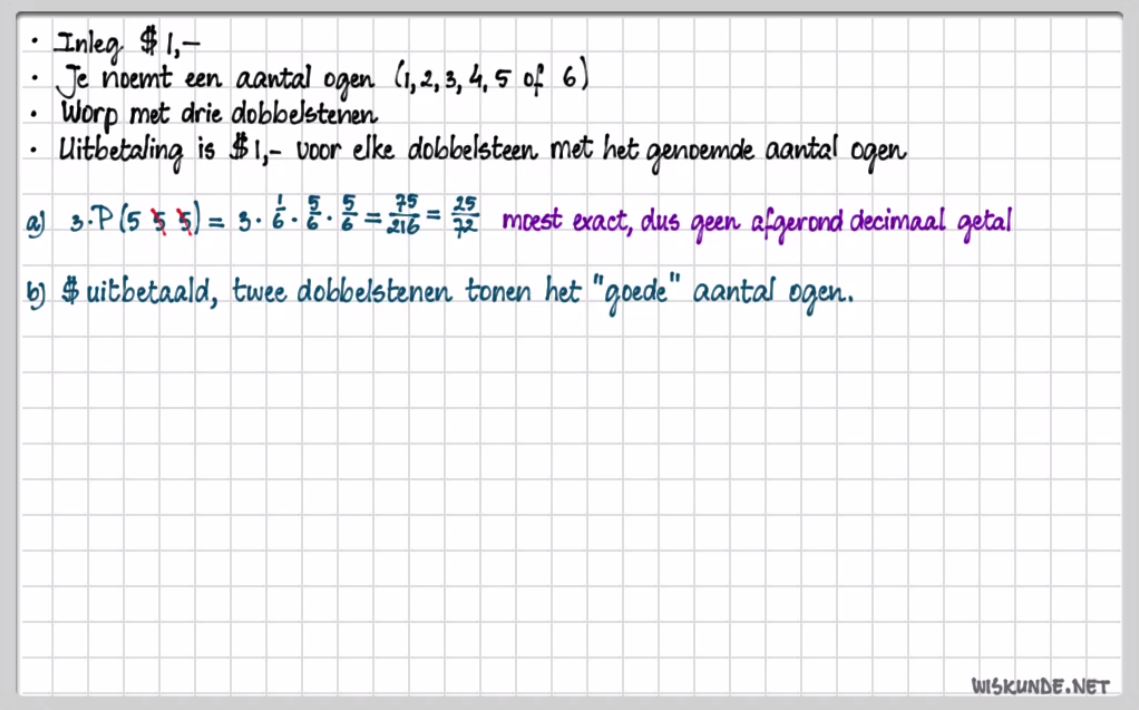 · Inleg $ 1,–
· Je noemt een aantal ogen (1, 2, 3, 4, 5 of 6)
· Worp met drie dobbelstenen
· Uitbetaling is $ 1,– voor elke dobbelsteen met het genoemde aantal ogen
a) 3·P(5 5̸ 5̸) = 3 · 1/6 · 5/6 · 5/6 = 75/216 = 25/72 moest exact, dus geen afgerond decimaal getal
b) $ uitbetaald, twee dobbelstenen tonen het "goede" aantal ogen.
WISKUNDE.NET